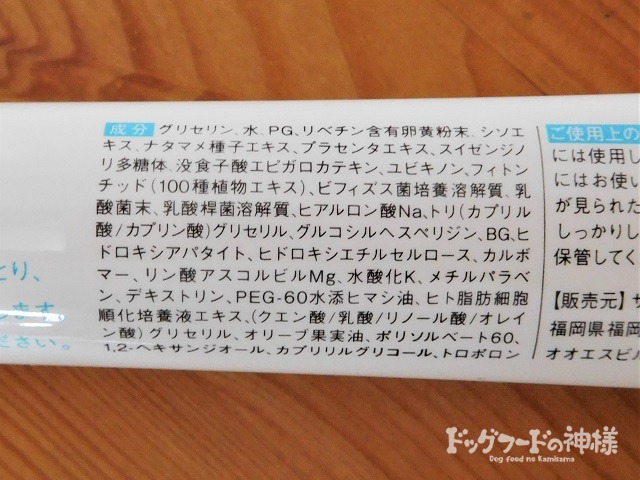 成分 グリセリン、水、PG、リベチン含有卵黄粉末、シソエ
キス、ナタマメ種子エキス、プラセンタエキス、スイゼンジノ
リ多糖体、没食子酸エピガロカテキン、ユビキノン、フィトン
チッド(100種植物エキス)、ビフィズス菌培養溶解質、乳
酸菌末、乳酸桿菌溶解質、ヒアルロン酸Na、トリ(カプリル
酸/カプリン酸)グリセリル、グルコシルヘスペリジン、BG、ヒ
ドロキシアパタイト、ヒドロキシエチルセルロース、カルボ
マー、リン酸アスコルビルMg、水酸化K、メチルパラベ
ン、デキストリン、PEG-60水添ヒマシ油、ヒト脂肪細胞
順化培養液エキス、(クエン酸/乳酸/リノール酸/オレイ
ン酸)グリセリル、オリーブ果実油、ポリソルベート60、
1,2-ヘキサンジオール、カプリリルグリコール、トロポロン
ご使用上の
には使用し
にはお使い
が見られた
しっかりし
保管してく
【販売元】
福岡県福岡
オオエスビル
とり、
します。
ださい。
ドッグフードの神様
Dog food no Kamisama